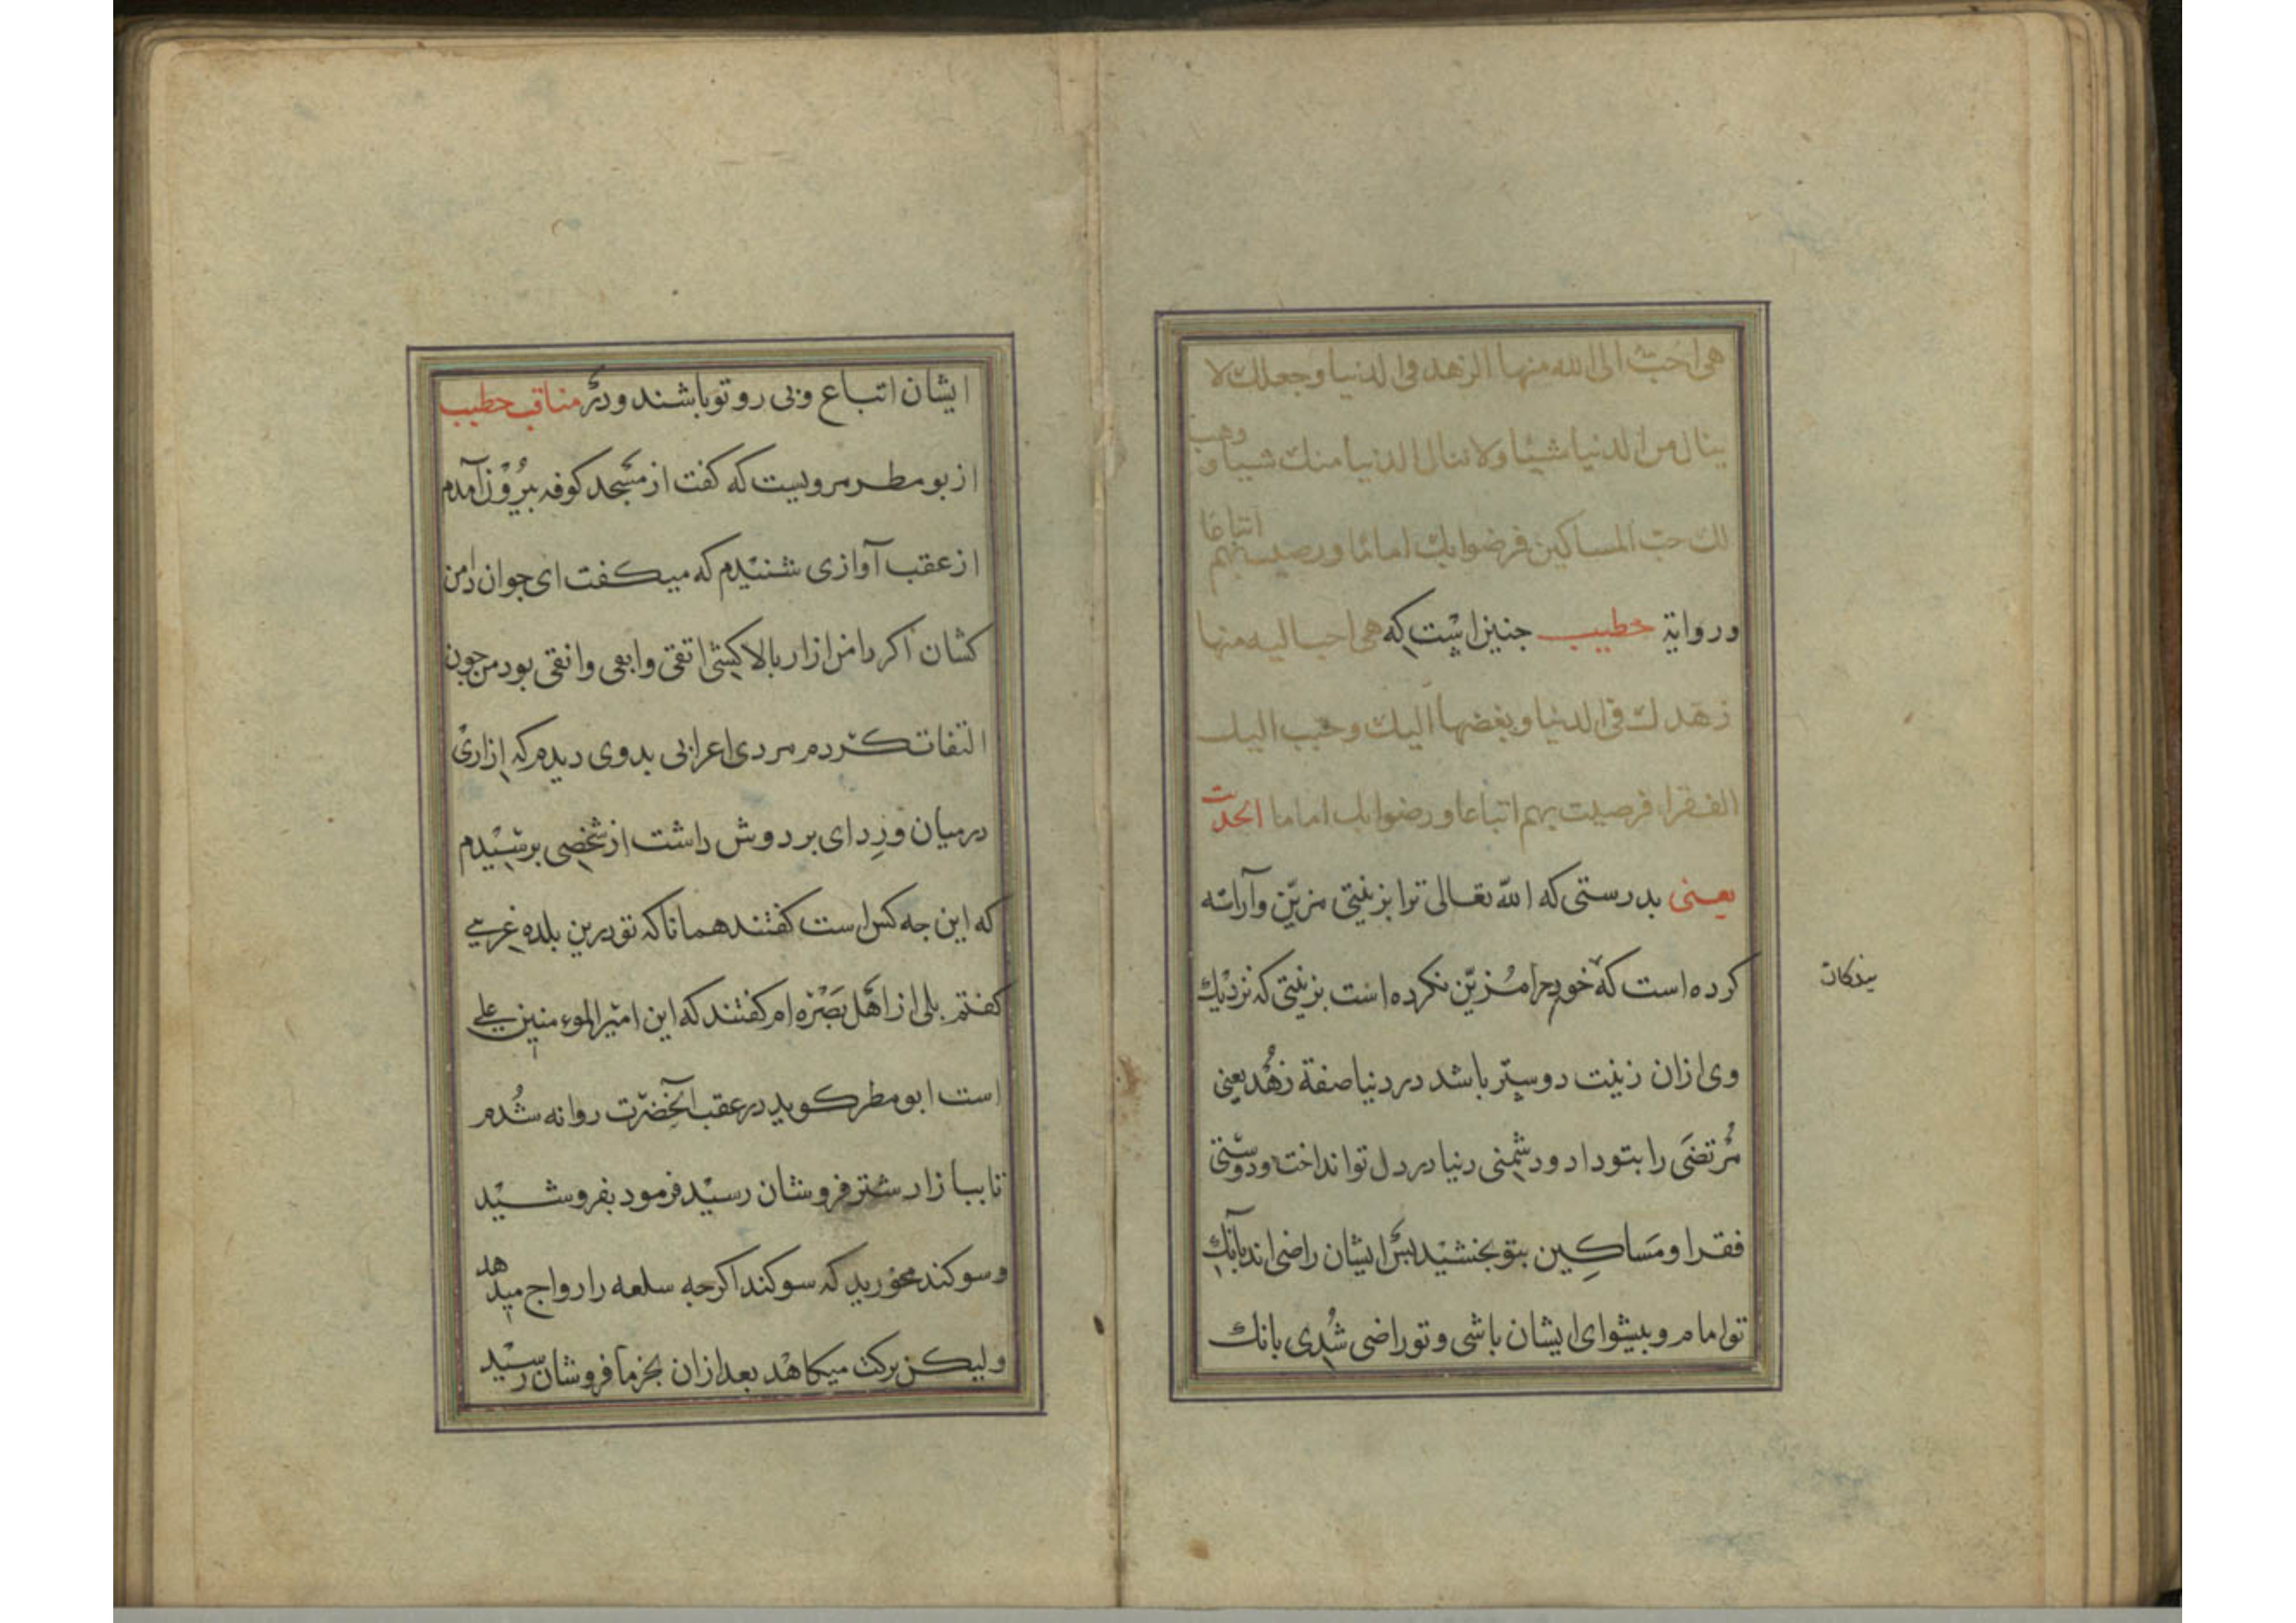 هی احبّ الی الله منها الزهد فی الدنیا وجعلك لا
ینال من الدنیا شیئا ولا تنال الدنیا منك شییا و وهب
لك حبّ المساکین فرضوا بك اماما ورضیت بهم اتباعا
وروایة خطیب جنین است که هی احب الیه منها
زهدك فی الدنیا وبغضها الیك وحبب الیك
الفقراء فرضیت بهم اتباعا ورضوا بك اماما الحدیث
یعنی بدرستی که اللّه تعالی ترا بزینتی مزیّن وآراسته
کرده است که خود را مُزیّن نکرده است بزینتی که نزدیك
بندکان
وی ازان زینت دوستر باشد در دنیا صفة زهُد یعنی
مُرتضَی را بتو داد ودشمنی دنیا در دل تو انداخت ودوستی
فقرا ومَساکِین بتو بخشید پس ایشان راضی اند بآنك
تو امام وپیشوای ایشان باشی وتو راضی شُدی بانك
ایشان اتباع وپی رو تو باشند ودر مناقب خطیب
از بو مطر مرویست که کفت از مسجد کوفه بیرُوْن آمدم
از عقب آوازی شنیدم که میکفت ای جوان دامن
کشان اکر دامن ازار بالا کشی اتقی وابقی وانقی بود من جون
التفات کردم مردی اعرابی بدوی دیدم که اِزاری
درمیان ورِدای بر دوش داشت از شخصی پرسیدم
که این جه کس است کفتند همانا که تو درین بلده غریبی
کفتم بلی از اهل بَصْره ام کفتند که این امیر الموءمنین علی
است ابو مطر کوید در عقب آنحضرت روانه شُدم
تا ببازار شتر فروشان رسید فرمود بفروشید
وسوکند مخورید که سوکند اکرجه سلعه را رواج میدهد
ولیکن برکت میکاهد بعد ازان بخرما فروشان رسید